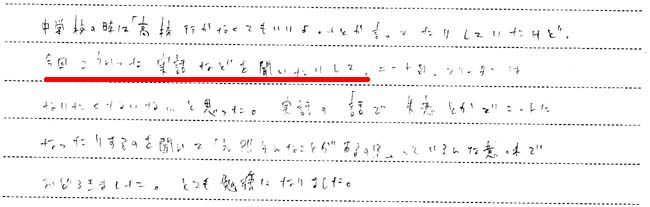 中学校の時は「高校行かなくてもいいよ」とか言ったりしていたけど、
今回こういった実話などを聞いたりして、ニートや、フリーターは
なりたくないな…と思った。実話の話で失恋とかでニートに
なったりするのを聞いて「え?!そんなことがあるの!?」っていろんな意味で
おどろきました。とても勉強になりました。